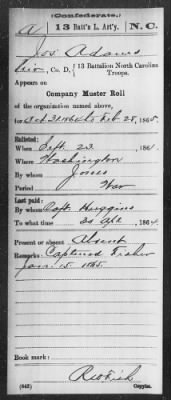 (Confederate.)
A 13 Batt'n L. Art'y. N.C.
Jos Adams
Co. D, 13 Battalion North Carolina Troops.
Appears on
Company Muster Roll
of the organization named above,
for Oct 31 1864 to Feb 28, 1865.
Enlisted:
When Sept. 23, 1861.
Where Washington
By whom Jones
Period War
Last paid:
By whom Capt. Huggins
To what time 30 Apl, 1864.
Present or absent Absent
Remarks: Captured Fisher
Jan. 15. 1865.
Book mark:
(642) Copyist.